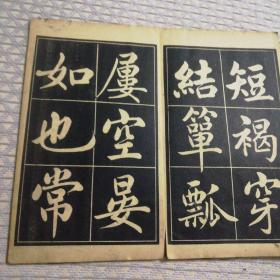 短褐穿
結簞瓢
屢空晏
如也常